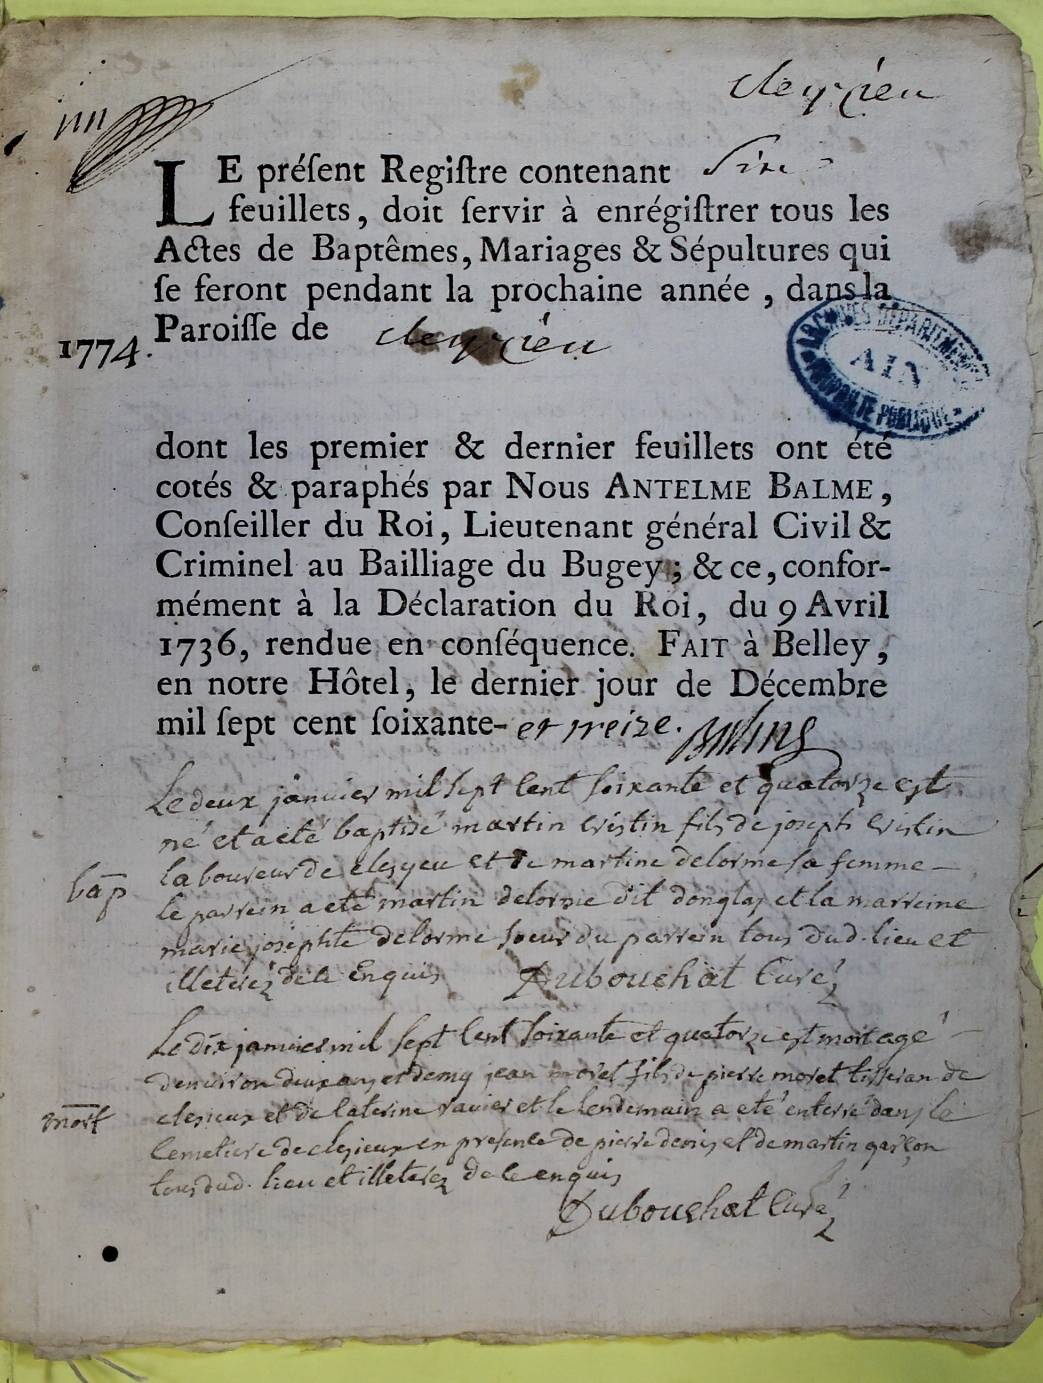 cleyzieu
LE préſent Regiſtre contenant Six
feuillets, doit ſervir à enrégiſtrer tous les
Actes de Baptêmes, Mariages & Sépultures qui
ſe feront pendant la prochaine année, dans la
1774. Paroiſſe de cleyzieu
ARCHIVES DÉPARTEMENTALES
AIN
PROPRIÉTÉ PUBLIQUE
dont les premier & dernier feuillets ont été
cotés & paraphés par Nous ANTELME BALME,
Conſeiller du Roi, Lieutenant général Civil &
Criminel au Bailliage du Bugey; & ce, confor-
mément à la Déclaration du Roi, du 9 Avril
1736, rendue en conſéquence. FAIT à Belley,
en notre Hôtel, le dernier jour de Décembre
mil ſept cent ſoixante- et treize.
Le deux janvier mil sept cent soixante et quatorze est
né et a eté baptisé martin cristin fils de joseph cristin
bap laboureur de clesyeu et de martine delorme sa femme
le parrein a eté martin delorme dit donglas et la marreine
marie josephte delorme soeur du parrein tous dud. lieu et
illeterez de ce enquis Dubouchat Curé
Le dix janvier mil sept cent soixante et quatorze est mort agé
denviron deux ans et demy jean moret fils de pierre moret tisseran de
mort clesieux et de caterine ravier et le lendemain a eté enterré dans le
cemetiere de clesieux en presence de pierre denis et de martin garçon
tous dud. lieu et illeterez de ce enquis
Dubouchat Curé